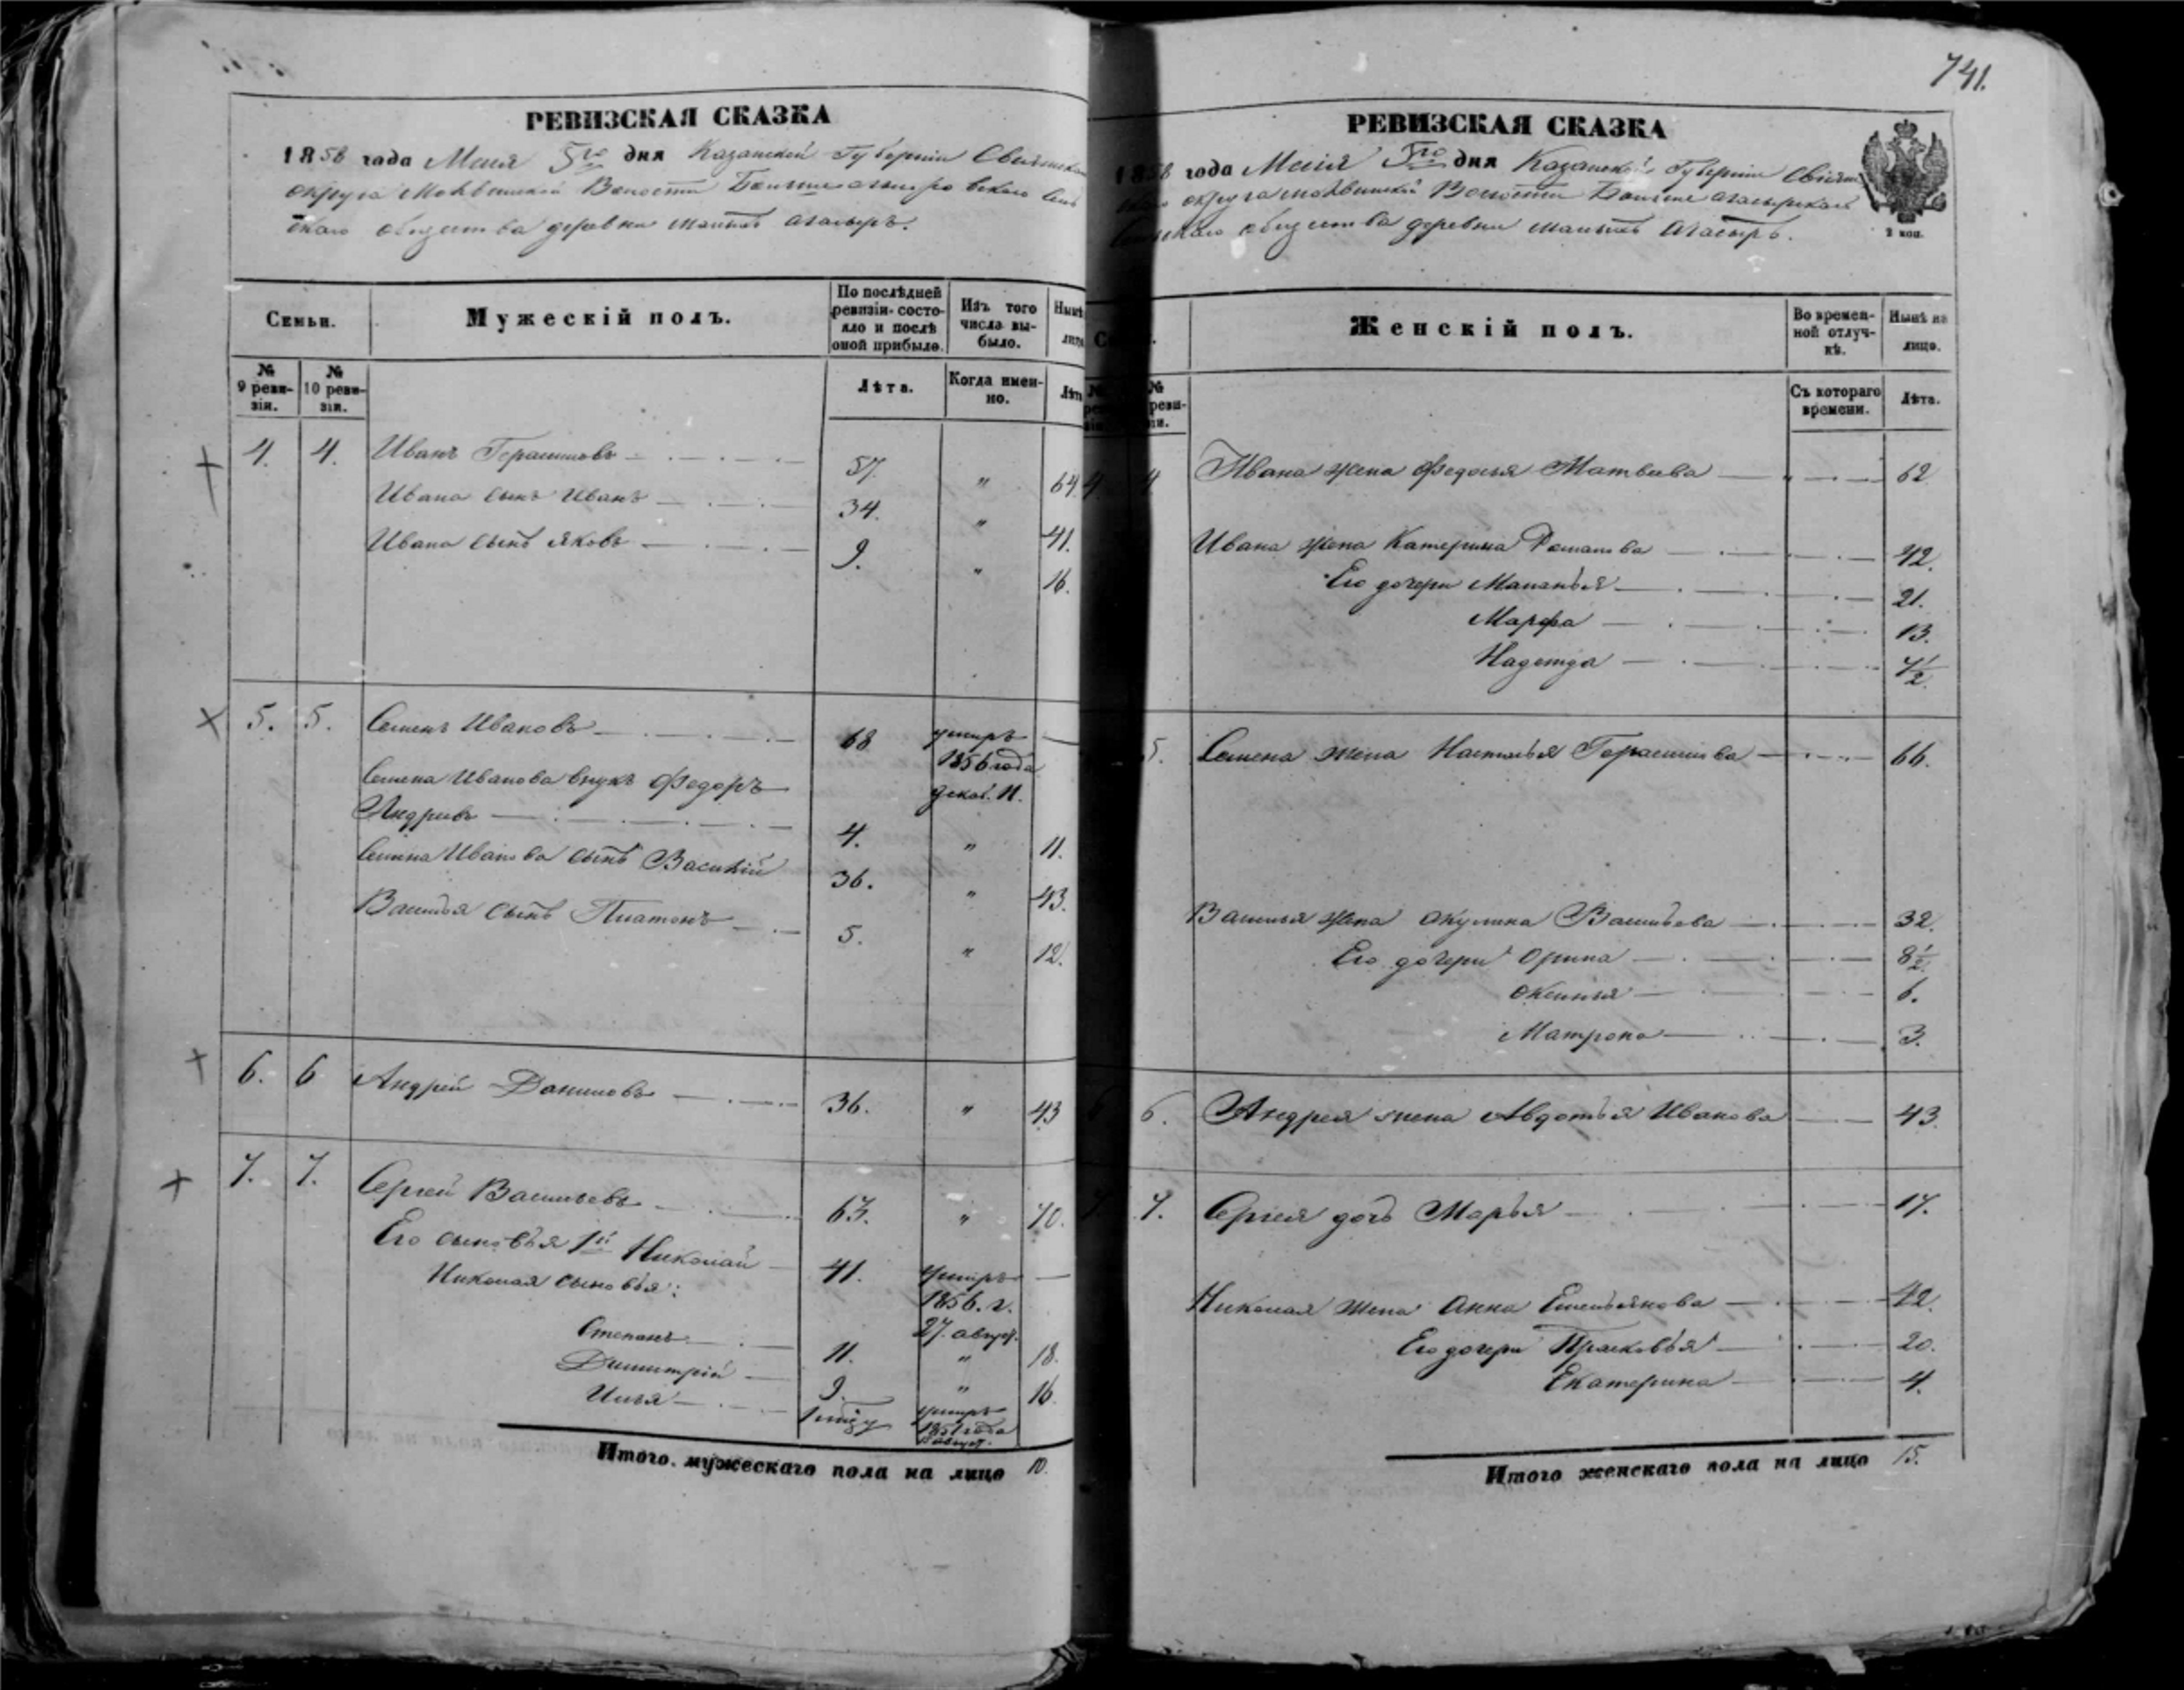 741.
РЕВИЗСКАЯ СКАЗКА
1858 года Маія 5го дня Казанской Губерніи Свіяжска
округа Молвинской Волости
скаго общества деревни Малыхъ Агасыръ.
Семьи.
Мужескій полъ.
По послѣдней ревизіи состояло и послѣ оной прибыло.
Изъ того числа выбыло.
Нынѣ
№ 9 ревизіи.
№ 10 ревизіи.
Лѣта.
Когда именно.
Лѣта
4. 4. Иванъ Герасимовъ 57. " 64
Ивана сынъ Иванъ 34. " 41.
Ивана сынъ Яковъ 9. " 16.
5. 5. Семенъ Ивановъ 68 умиръ —
1856 года
декаб. 11.
Семена Иванова внукъ Федоръ
Андреевъ 4. " 11.
Семена Иванова сынъ Василій 36. " 43.
Василья сынъ Платонъ 5. " 12.
6. 6 Андрей Даниловъ 36. " 43
7. 7. Сергей Васильевъ 63. " 70.
Его сыновья 1й Николай 41. умиръ —
1856. г.
27. август.
Николая сыновья:
Степанъ 11. " 18.
Димитрій 9. " 16.
Илья умиръ
1851 года
август.
Итого мужескаго пола на лицо 10.
РЕВИЗСКАЯ СКАЗКА
1858 года Маія 5го дня Казанской Губерніи Свіяж
округа Молвинской Волости
общества деревни Малыхъ Агасыръ.
2 коп.
Женскій полъ.
Во временной отлучкѣ.
Нынѣ на лицо.
№ реви-
зіи.
Съ котораго времени.
Лѣта.
4 4 Ивана жена Федосья Матвѣева " 62
Ивана жена Катерина Романова 42.
Его дочери Маланья 21.
Марфа 13.
Надежда 7 1/2.
5. Семена жена Настасья Герасимова 66.
Василья жена Окулина Васильева 32.
Его дочери Орина 8 1/2.
Оксинья 6.
Матрона 3.
6 6. Андрея жена Авдотья Иванова 43.
7 7. Сергея дочь Марья 17.
Николая жена Анна Емельянова 42.
Его дочери Прасковья 20.
Екатерина 4.
Итого женскаго пола на лицо 15.